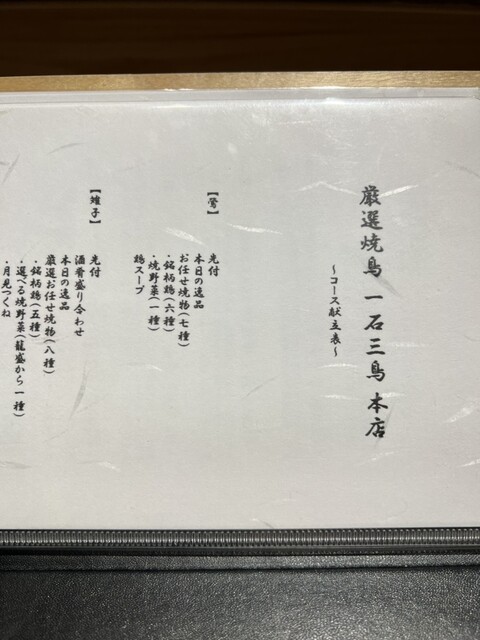 厳選焼鳥 一石三鳥 本店
~コース献立表~
【鶯】
先付
本日の逸品
お任せ焼物(七種)
・銘柄鶏(六種)
・焼野菜(一種)
鶏スープ
【雉子】
先付
酒肴盛り合わせ
本日の逸品
厳選お任せ焼物(八種)
・銘柄鶏(五種)
・選べる焼野菜(籠盛から一種)
・月見つくね